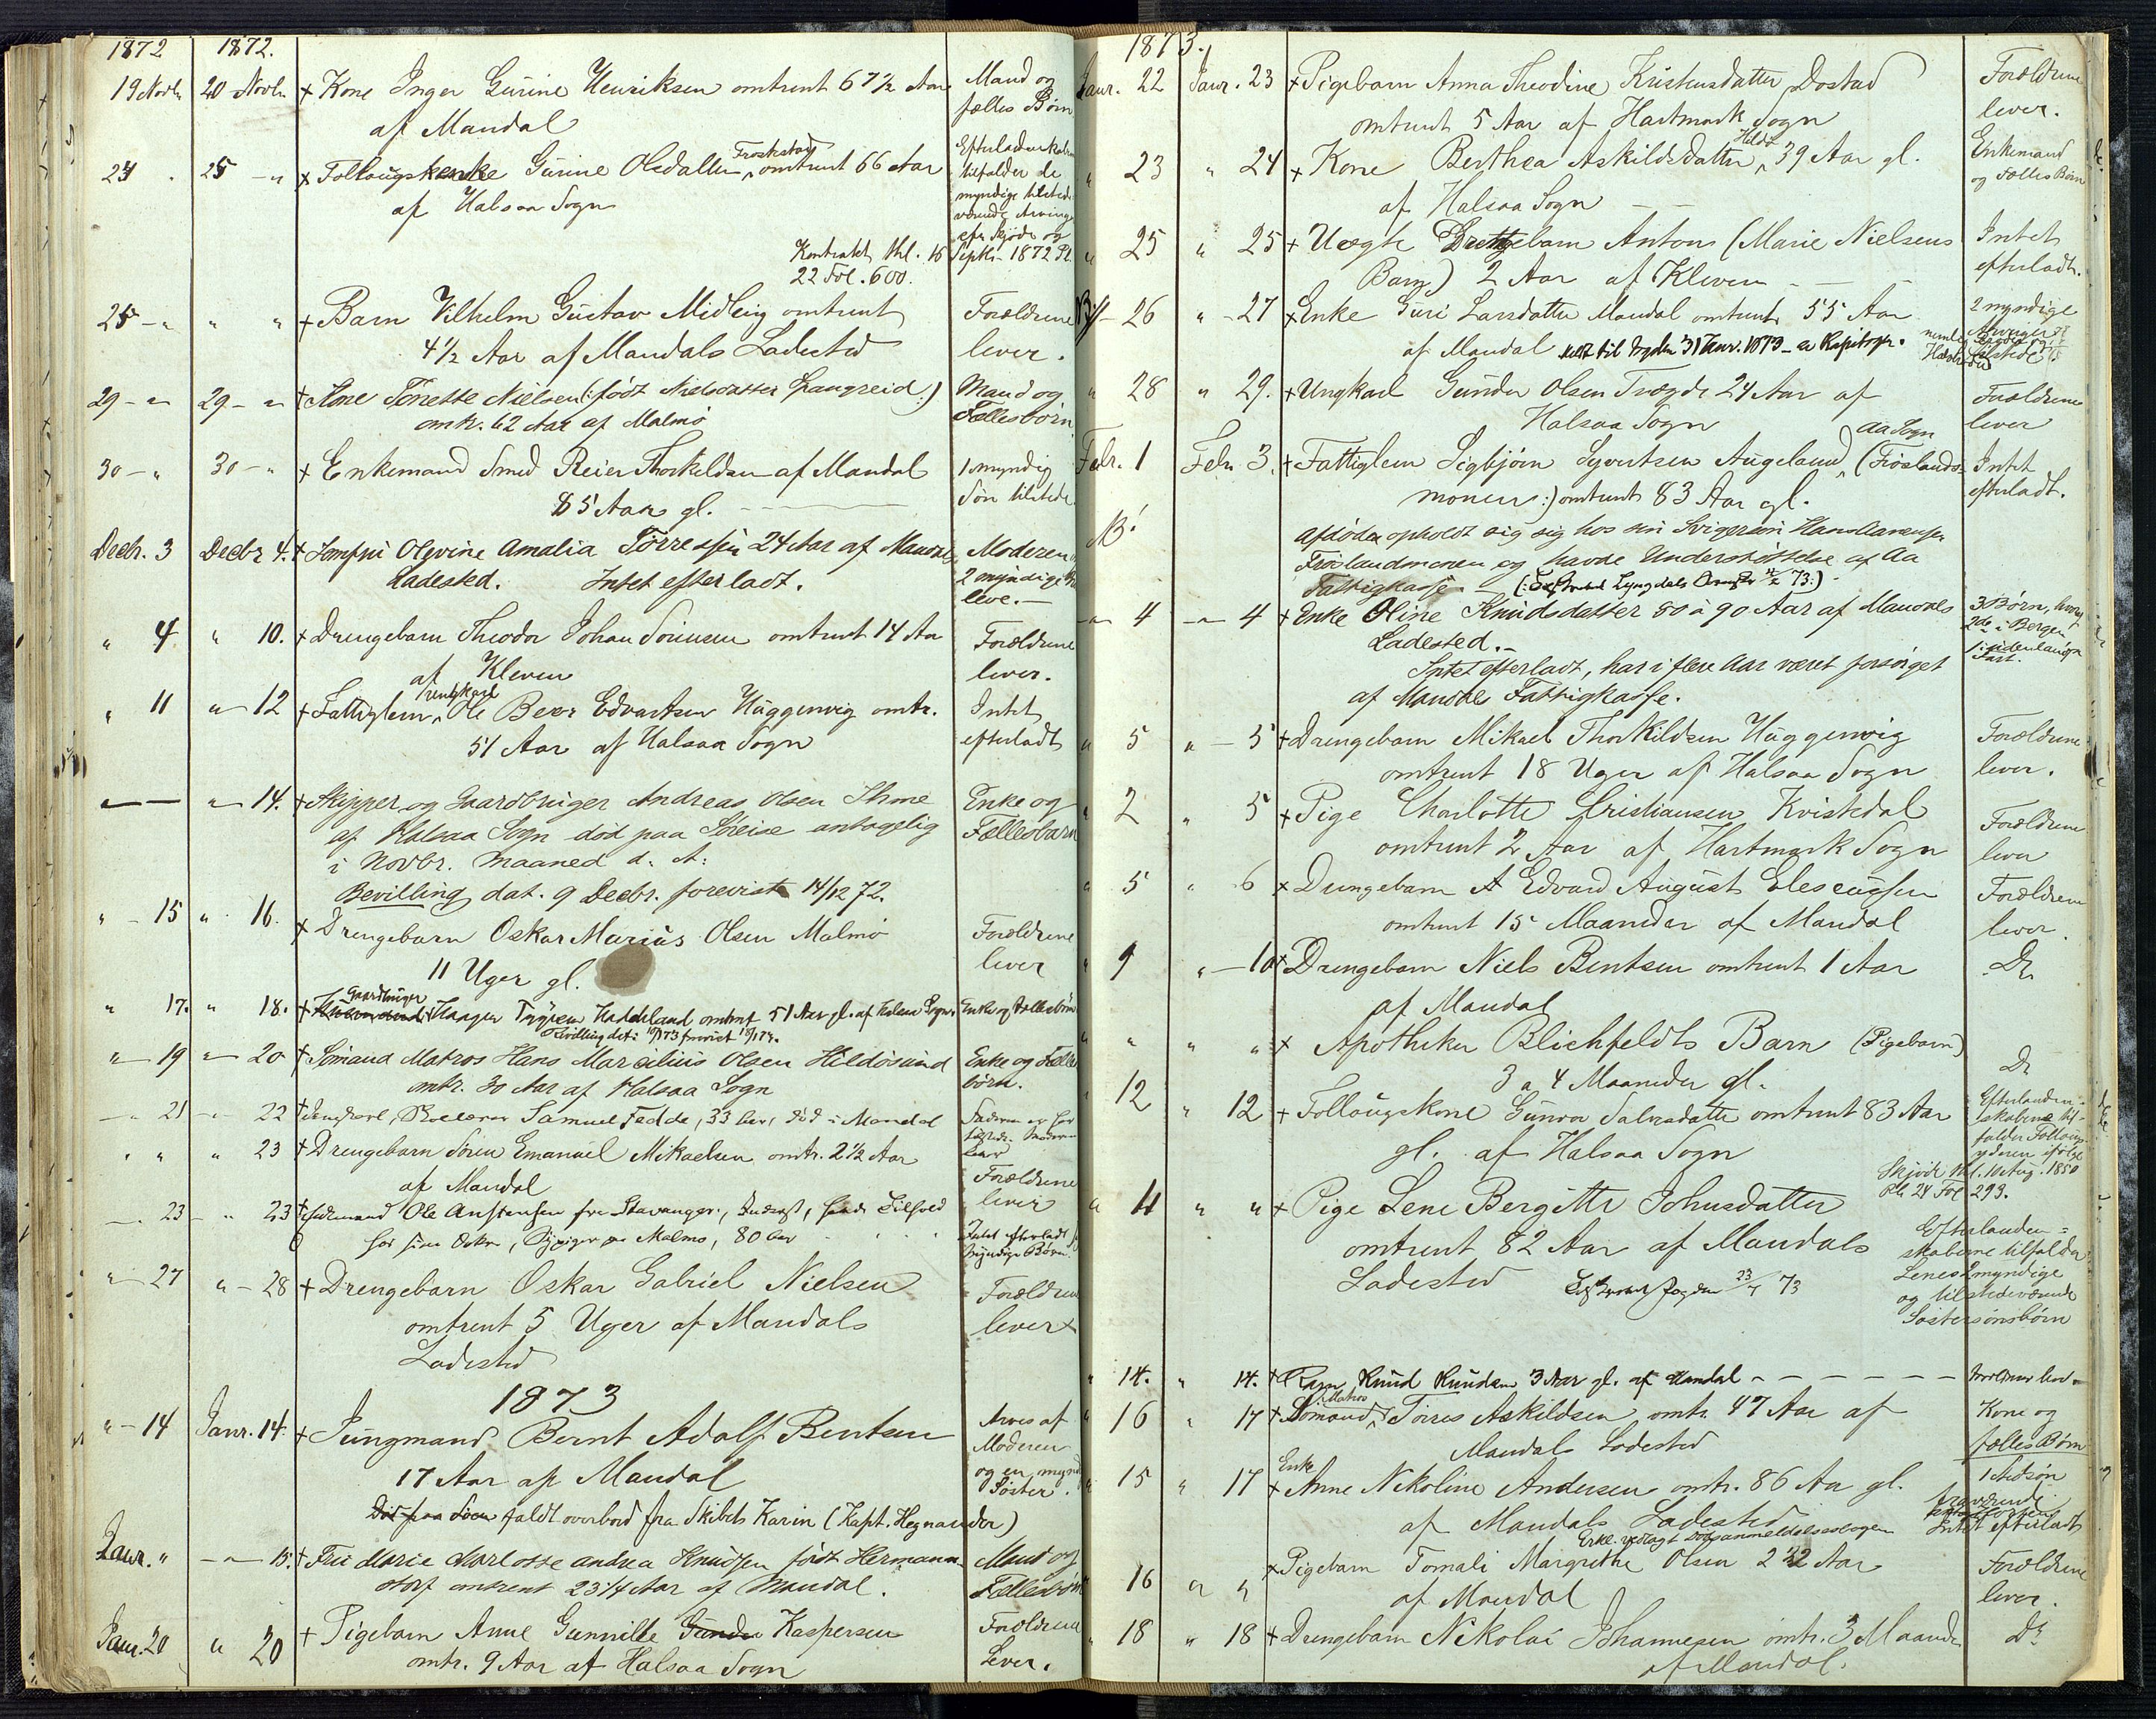 1872 1872.
19 Novbr 20 Novbr + Kone Inger Gurine Henriksen omtrent 67 1/2 Aar Mand og
af Mandal fælles Børn
Froshstad
24 " 25 - " + Follaugskenke Gurine Olsdatter omtrent 66 Aar
af Halsaa Sogn tilfalder de
myndige
efter Skjøde og
Kontrakt thl. 16 Septbr. 1872 Pl.
22 Fol. 600.
25 - " " " + Barn Vilhelm Gustav Midling omtrent Forældrene
4 1/2 Aar af Mandals Ladested lever.
29 - " 29 - " + Kone Tonette Nielsen (: født Nielsdatter Haugreid :) Mand og
omtr. 62 Aar af Malmø Fællesbørn
30 - " 30 - " + Enkemand Smed Reier Thorkildsen af Mandal 1 myndig
85 Aar gl. Søn tilstede
Decbr. 3 Decbr 4. + Jomfru Olevine Amalia Tørresen 24 Aar af Mandals Moderen
Ladested. Intet efterladt. 2 myndige
leve. -
" 4 " 10. + Drengebarn Theodor Johan Sørensen omtrent 14 Aar Forældrene
af Kleven lever.
Ungkarl
" 11 " - 12 + Fattiglem Ole Beer Edvartsen Huggenvig omtr. Intet
51 Aar af Halsaa Sogn efterladt
- - " 14. + Skipper og Gaardbruger Andreas Olsen Ihme Enke og
af Halsaa Sogn død paa Søreise antagelig Fællesbarn
i Novbr. Maaned d. A:
Bevilling dat. 9 Decbr. forevist 14/12 72.
" - 15 " 16. + Drengebarn Oskar Marius Olsen Malmø Forældrene
11 Uger gl. lever
Gaardbruger
" 17. " 18. + Haagen Haddeland omtrent 51 Aar gl. af Halsaa Sogn. Enke og Fællesbørn
" - 19 " - 20 + Sømand Matros Hans Marselius Olsen Hildøsund Enke og Fælles
omtr. 30 Aar af Halsaa Sogn børn.
- 21 - 22 + Ungkarl, Samuel Fedde, 33 Aar, død i Mandal
" " " 23 + Drengebarn Søren Emanuel Mikaelsen omtr. 2 1/2 Aar
af Mandal Forældrene
lever
- 23 - " 23 + Enkemand Ole fra Stavanger,
Malmø, 80 Aar Intet efterladt
myndige Børn
" - 27 " - 28 + Drengebarn Oskar Gabriel Nielsen Forældrene
omtrent 5 Uger af Mandals lever
Ladested
1873
" - 14 Janr. 14 + Jungmand Bernt Adolf Bentsen Arves af
17 Aar af Mandal Moderen
og en mynd
Søster.
Død paa Søen faldt overbord fra Skibet Karin (Kapt. Hegnander)
Janr. " - " - 15. + Fru Marie Charlotte Andrea Knudsen født Hermann- Mand og
storf omtrent 23 1/4 Aar af Mandal. Fællesbørn
Janr. 20 " 20 + Pigebarn Anne Gunnille Gunder Kaspersen Forældrene
omtr. 9 Aar af Halsaa Sogn Lever.
1873.
Janr. 22 Janr. 23 + Pigebarn Anna Theodine Kristensdatter Dostad Forældrene
omtrent 5 Aar af Hartmark Sogn lever.
Hilde
" 23 " 24 + Kone Berthea Askildsdatter 39 Aar gl. Enkemand
af Halsaa Sogn og Fælles Børn
" 25 " 25 + Uægte Drengebarn Anton (Marie Nielsens Intet
Barn) 2 Aar af Kleven efterladt.
26 " - 27 + Enke Guri Larsdatter Mandal omtrent 55 Aar 2 myndige
af Mandal meldt til Fogden 31 Janr. 1873 Arvinger
tilstede
" 28 " 29. + Ungkarl Gunder Olsen Trægde 24 Aar af Forældrene
Halsaa Sogn lever
Aa Sogn
Febr. 1 Febr. 3. + Fattiglem Sigbjørn Syvertsen Augeland (Frøslands- Intet
monen :) omtrent 83 Aar gl. efterladt.
NB: Afdøde opholdt sig sig hos sin Svigersøn
Frøslandsmonen og havde Understøttelse af Aa
Fattigkasse. - Lyngdals 73 :)
- " - 4 - " - 4 + Enke Oline Knudsdatter 80 à 90 Aar af Mandals 3 Børn, hvoraf
Ladested. - 2de i Bergen
1 i udenlandsk
Fart.
Intet efterladt, har i flere Aar været forsørget
af Mandal Fattigkasse.
" 5 " - 5 + Drengebarn Mikael Thorkildsen Huggenvig Forældrene
omtrent 18 Uger af Halsaa Sogn lever.
" 2 " 5 + Pige Charlotte Cristiansen Kvisedal Forældrene
omtrent 2 Aar af Hartmark Sogn lever
" 5 " 6 + Drengebarn A Edvard August Eleseussen Forældrene
omtrent 15 Maaneder af Mandal lever.
" 9 " - 10 + Drengebarn Niels Bentsen omtrent 1 Aar Do
af Mandal
" " " + Apotheker Blichfeldts Barn (Pigebarn) Do
3 a 4 Maaneder gl.
12 " 12 + Follaugskone Gunvor Salvesdatter omtrent 83 Aar Efterladen-
gl. af Halsaa Sogn skaberne til-
falder Follaugs
yderen ifølge
Skjøde thl. 10 Aug. 1850
Pb 24 Fol 293.
" 11 " " + Pige Lene Bergitte Johnsdatter
omtrent 82 Aar af Mandals Efterladen-
Ladested skaberne tilfalder
Fogden 23/4 73 Lenes 2 myndige
og tilstedeværende
Søstersønsbørn
" 14. " 14. + Barn Knud Knudsen 3 Aar gl. af Mandal - - - - - -
Matros
16 " 17 + Sømand Tørres Askildsen omtr. 47 Aar af Kone og
Mandals Ladested fælles Børn
Enke
15 " 17 + Anne Nikoline Andersen omtr. 86 Aar gl. 1
af Mandals Ladested fraværende
Intet efterladt
Erkl. vedlagt Dødsanmeldelsesbogen
16 " " + Pigebarn Tomali Margrethe Olsen 2 1/2 Aar Forældrene
af Mandal lever.
" 18 " 18 + Drengebarn Nikolai Johannesen omtr. 3 Maaneder Do
af Mandal.